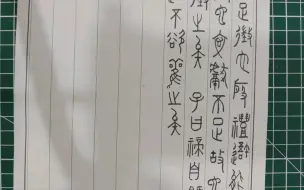 足徵也殷禮吾能
也文獻不足故也
徵之矣 子曰禘自既
不欲觀之矣